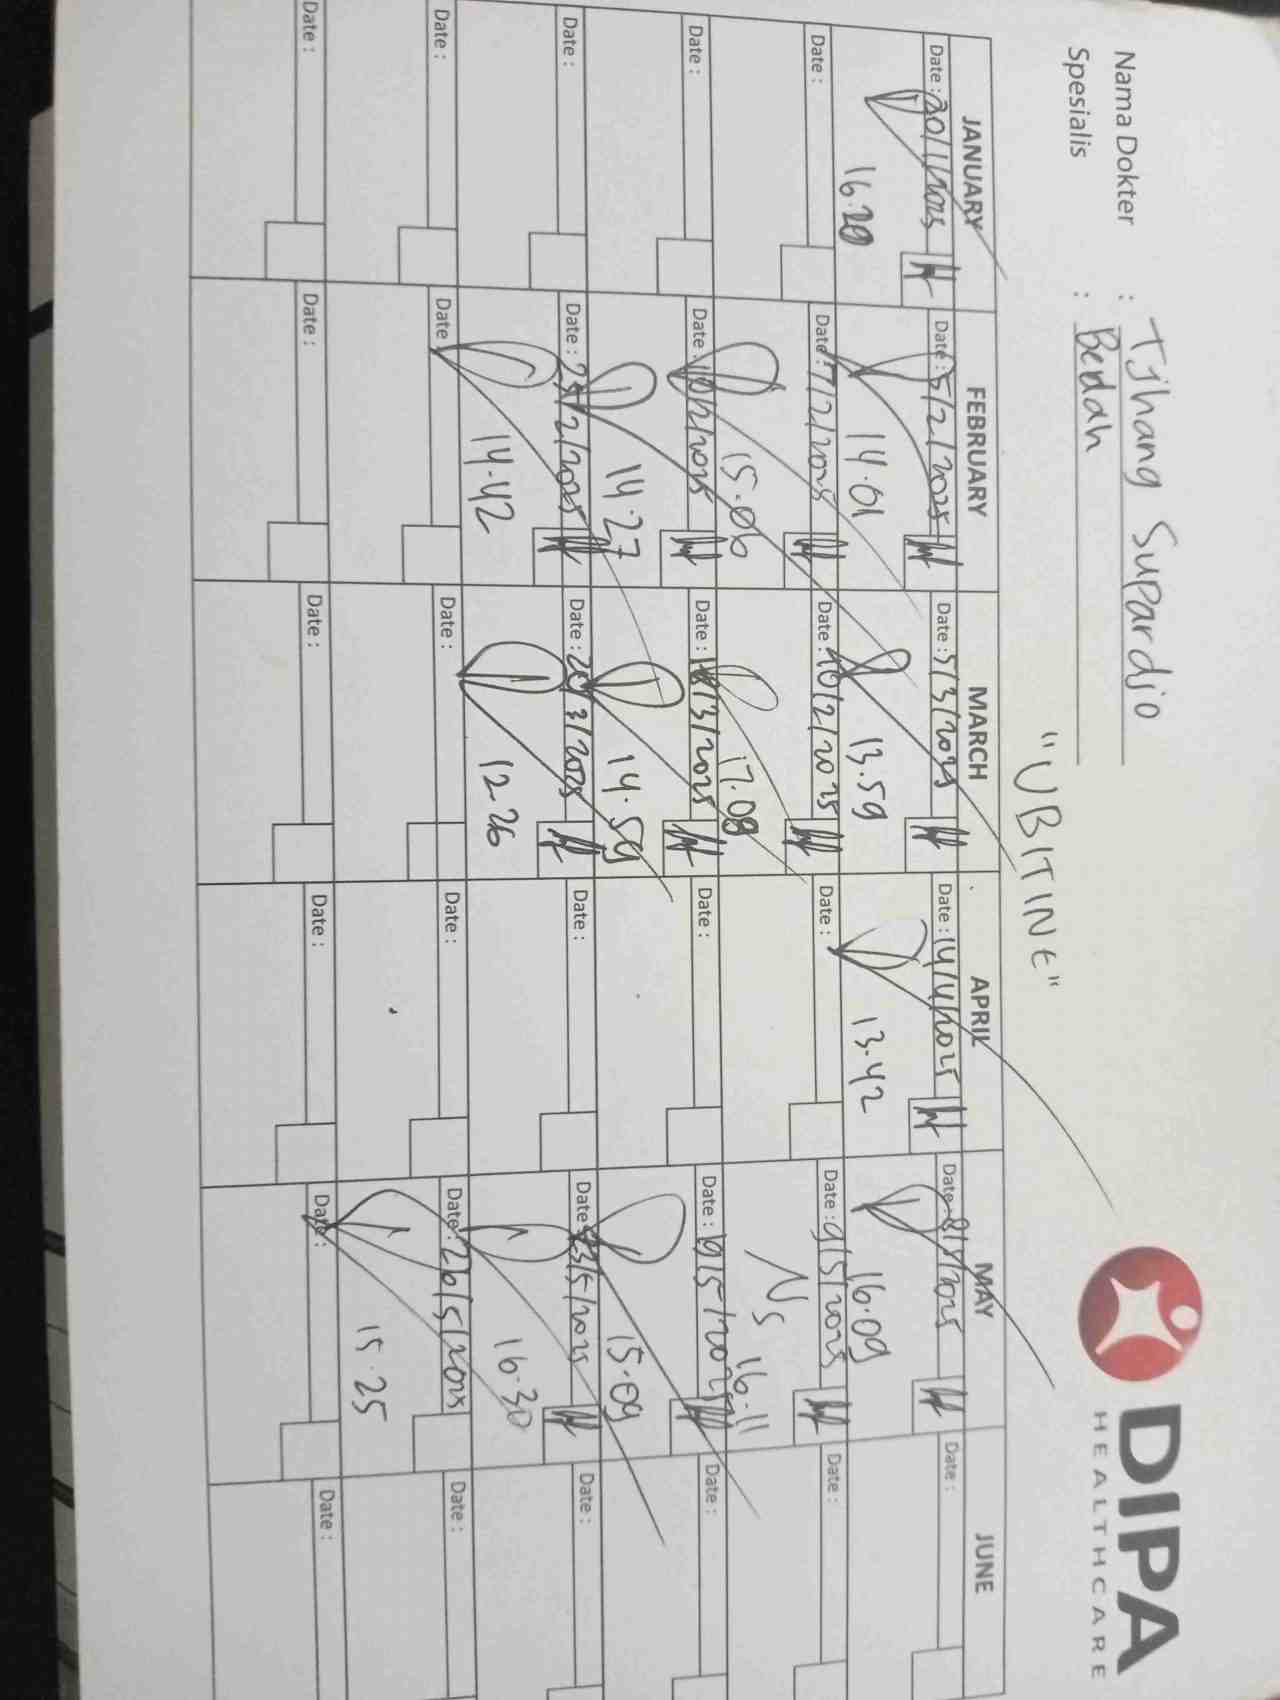 Nama Dokter : Tjhang Supardjo
Spesialis : Bedah
DIPA
HEALTHCARE
"UBITINE"
JANUARY FEBRUARY MARCH APRIL MAY JUNE
Date : 20/1/2025 Date : 5/2/2025 Date : 5/3/2025 Date : 14/4/2025 Date : 8/5/2025 Date :
16.20 14.01 13.59 13.42 16.09
Date : Date : 7/2/2025 Date : 10/2/2025 Date : Date : 9/5/2025 Date :
15.06 17.08 NS 16.11
Date : Date : 10/2/2025 Date : 18/3/2025 Date : Date : 19/5/2025 Date :
14.27 14.59 15.09
Date : Date : 25/2/2025 Date : 20/3/2025 Date : Date : 23/5/2025 Date :
14.42 12.26 16.30
Date : Date Date : Date : Date : 26/5/2025 Date :
15.25
Date : Date : Date : Date : Date : Date :